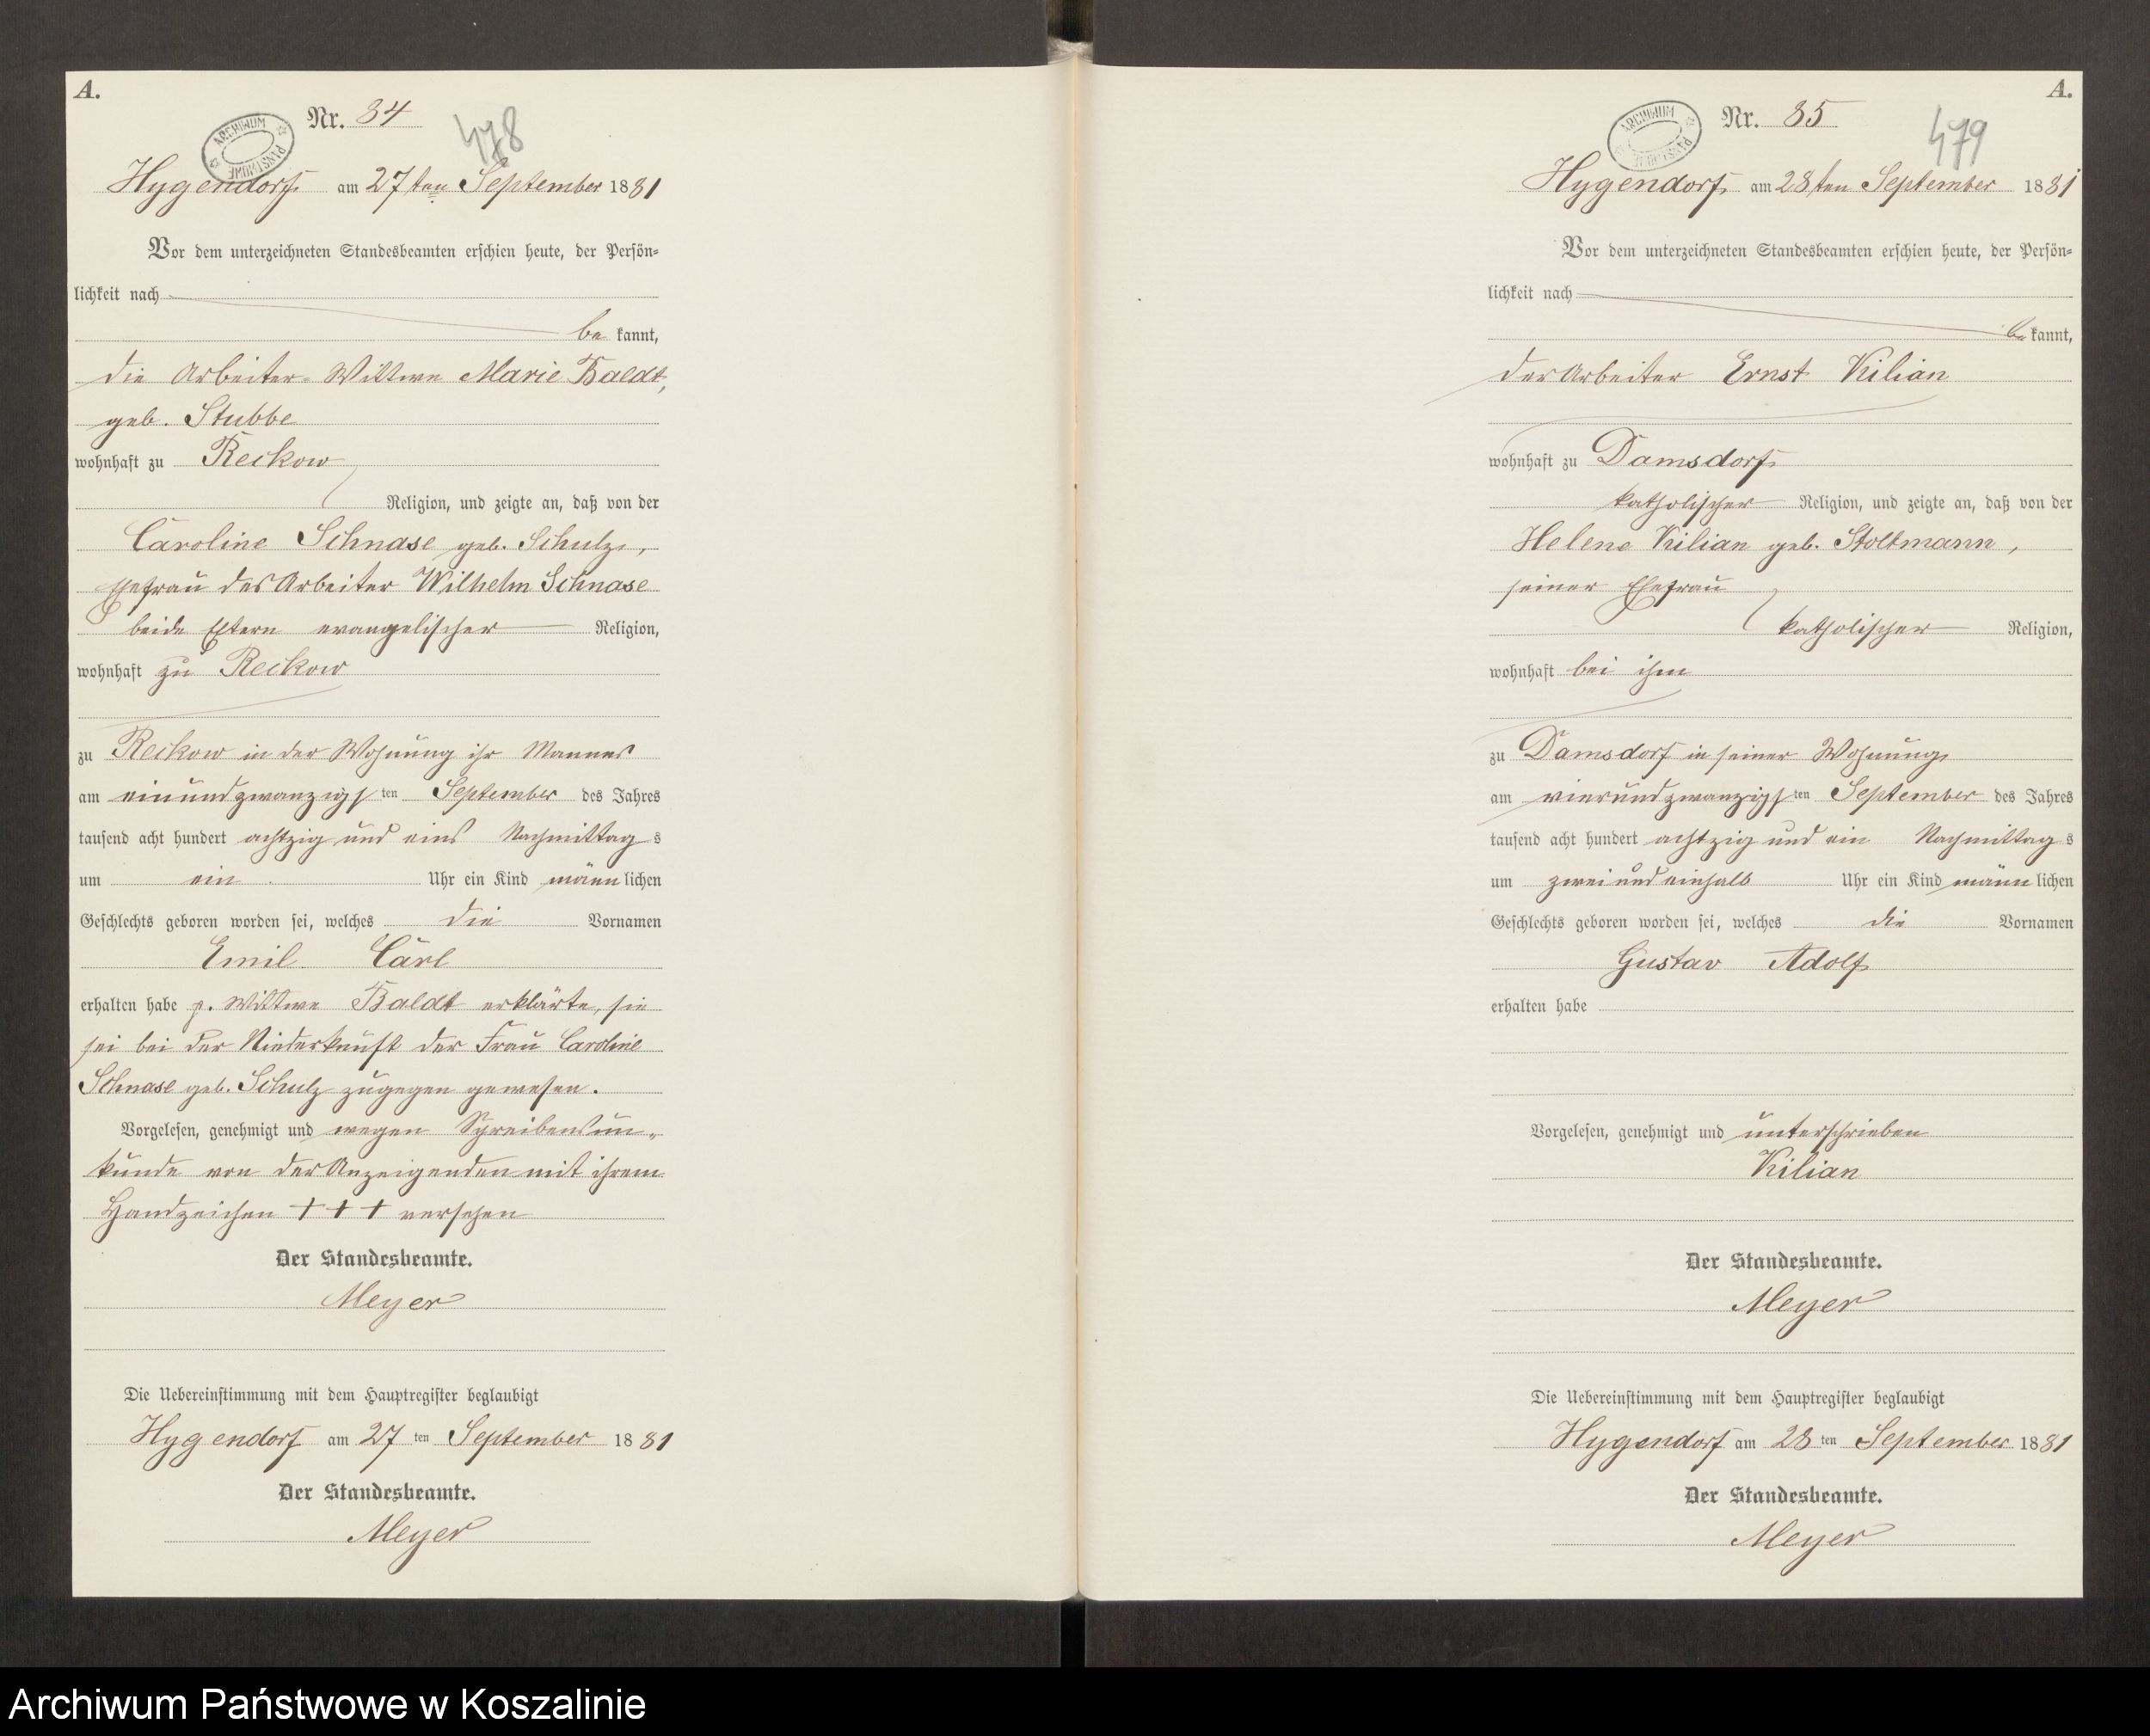 A.
Nr. 84
478
ARCHIWUM PAŃSTWOWE
Hygendorf am 27ten September 1881
Vor dem unterzeichneten Standesbeamten erschien heute, der Persön=
lichkeit nach
be kannt,
die Arbeiter-Wittwe Marie Baldt,
geb. Stubbe
wohnhaft zu Reckow
Religion, und zeigte an, daß von der
Caroline Schnase geb. Schulz,
Ehefrau des Arbeiter Wilhelm Schnase
beide Eltern evangelischer Religion,
wohnhaft zu Reckow
zu Reckow in der Wohnung ihr Mannes
am einundzwanzigsten September des Jahres
tausend acht hundert achtzig und eins Nachmittags
um ein Uhr ein Kind männlichen
Geschlechts geboren worden sei, welches die Vornamen
Emil Carl
erhalten habe p. Wittwe Baldt erklärte, sie
sei bei der Niederkunft der Frau Caroline
Schnase geb. Schulz zugegen gewesen.
Vorgelesen, genehmigt und wegen Schreibensun-
kunde von der Anzeigenden mit ihrem
Handzeichen +++ versehen
Der Standesbeamte.
Meyer
Die Uebereinstimmung mit dem Hauptregister beglaubigt
Hygendorf am 27ten September 1881
Der Standesbeamte.
Meyer
A.
Nr. 85
479
ARCHIWUM PAŃSTWOWE
Hygendorf am 28ten September 1881
Vor dem unterzeichneten Standesbeamten erschien heute, der Persön=
lichkeit nach
be kannt,
der Arbeiter Ernst Kilian
wohnhaft zu Damsdorf
katholischer Religion, und zeigte an, daß von der
Helene Kilian geb. Stoltmann,
seiner Ehefrau
katholischer Religion,
wohnhaft bei ihm
zu Damsdorf in seiner Wohnung
am vierundzwanzigsten September des Jahres
tausend acht hundert achtzig und ein Nachmittags
um zwei und einhalb Uhr ein Kind männlichen
Geschlechts geboren worden sei, welches die Vornamen
Gustav Adolf
erhalten habe
Vorgelesen, genehmigt und unterschrieben
Kilian
Der Standesbeamte.
Meyer
Die Uebereinstimmung mit dem Hauptregister beglaubigt
Hygendorf am 28ten September 1881
Der Standesbeamte.
Meyer
Archiwum Państwowe w Koszalinie